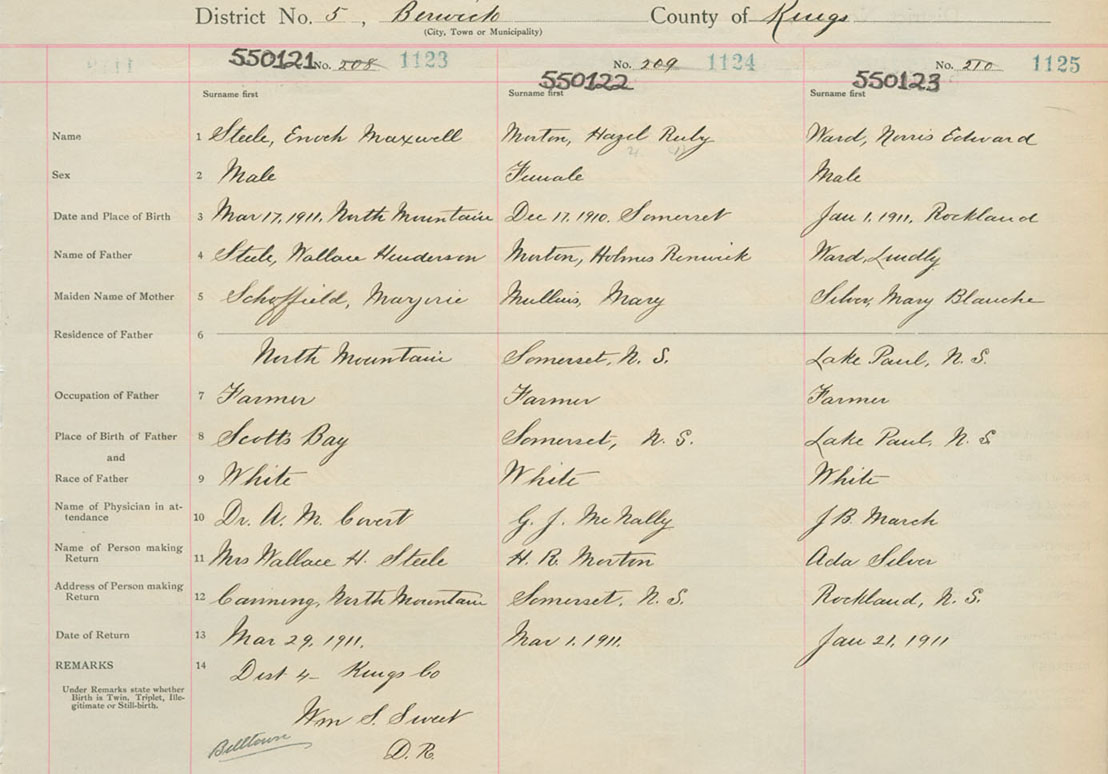 District No. 5, Berwick County of Kings
(City, Town or Municipality)
550121 No. 208 1123 No. 209 1124 No. 210 1125
550122 550123
Surname first Surname first Surname first
Name 1 Steele, Enoch Maxwell Morton, Hazel Ruby Ward, Norris Edward
Sex 2 Male Female Male
Date and Place of Birth 3 Mar 17, 1911, North Mountain Dec 17. 1910. Somerset Jan 1. 1911, Rockland
Name of Father 4 Steele, Wallace Henderson Morton, Holmes Renwick Ward, Lindly
Maiden Name of Mother 5 Schoffield, Marjorie Mullins, Mary Silver, Mary Blanche
Residence of Father 6
North Mountain Somerset, N. S. Lake Paul, N. S.
Occupation of Father 7 Farmer Farmer Farmer
Place of Birth of Father 8 Scotts Bay Somerset, N. S. Lake Paul, N. S
and
Race of Father 9 White White White
Name of Physician in at-
tendance 10 Dr. A. M. Covert G. J. McNally J B. March
Name of Person making
Return 11 Mrs Wallace H. Steele H. R. Morton Ada Silver
Address of Person making
Return 12 Canning, North Mountain Somerset, N. S. Rockland, N. S.
Date of Return 13 Mar 29, 1911. Mar 1. 1911. Jan 21, 1911
REMARKS 14 Dist 4 - Kings Co
Under Remarks state whether
Birth is Twin, Triplet, Ille-
gitimate or Still-birth.
Wm S. Sweet
D. R.